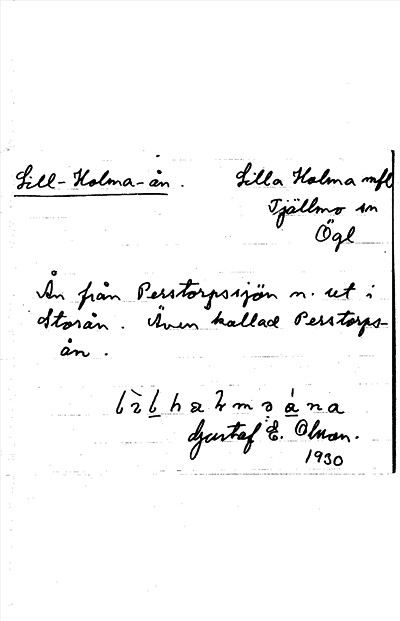 Lill-Holma-ån. Lilla Holma mfl
Tjällmo sn
Ögl
Ån från Perstorpssjön n. ut i
Storån. Även kallad Perstorps-
ån.
Gustaf E. Olsson.
1930